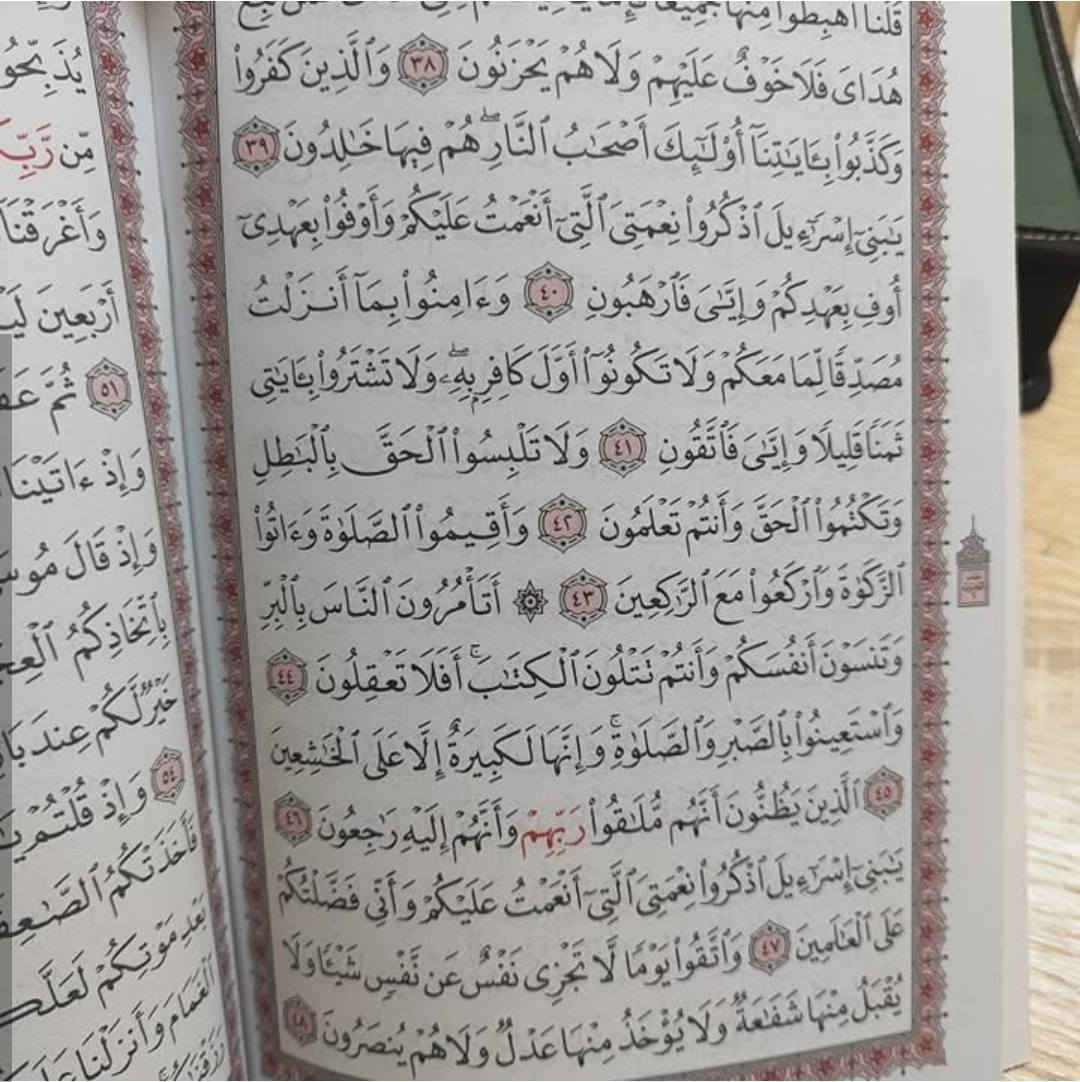 قُلْنَا ٱهْبِطُوا۟ مِنْهَا جَمِيعًا
هُدَاىَ فَلَا خَوْفٌ عَلَيْهِمْ وَلَا هُمْ يَحْزَنُونَ ٣٨ وَٱلَّذِينَ كَفَرُوا۟
وَكَذَّبُوا۟ بِـَٔايَـٰتِنَآ أُو۟لَـٰٓئِكَ أَصْحَـٰبُ ٱلنَّارِ ۖ هُمْ فِيهَا خَـٰلِدُونَ ٣٩
يَـٰبَنِىٓ إِسْرَٰٓءِيلَ ٱذْكُرُوا۟ نِعْمَتِىَ ٱلَّتِىٓ أَنْعَمْتُ عَلَيْكُمْ وَأَوْفُوا۟ بِعَهْدِىٓ
أُوفِ بِعَهْدِكُمْ وَإِيَّـٰىَ فَٱرْهَبُونِ ٤٠ وَءَامِنُوا۟ بِمَآ أَنزَلْتُ
مُصَدِّقًا لِّمَا مَعَكُمْ وَلَا تَكُونُوٓا۟ أَوَّلَ كَافِرٍۭ بِهِۦ ۖ وَلَا تَشْتَرُوا۟ بِـَٔايَـٰتِى
ثَمَنًا قَلِيلًا وَإِيَّـٰىَ فَٱتَّقُونِ ٤١ وَلَا تَلْبِسُوا۟ ٱلْحَقَّ بِٱلْبَـٰطِلِ
وَتَكْتُمُوا۟ ٱلْحَقَّ وَأَنتُمْ تَعْلَمُونَ ٤٢ وَأَقِيمُوا۟ ٱلصَّلَوٰةَ وَءَاتُوا۟
ٱلزَّكَوٰةَ وَٱرْكَعُوا۟ مَعَ ٱلرَّٰكِعِينَ ٤٣ ۞ أَتَأْمُرُونَ ٱلنَّاسَ بِٱلْبِرِّ
وَتَنسَوْنَ أَنفُسَكُمْ وَأَنتُمْ تَتْلُونَ ٱلْكِتَـٰبَ ۚ أَفَلَا تَعْقِلُونَ ٤٤
وَٱسْتَعِينُوا۟ بِٱلصَّبْرِ وَٱلصَّلَوٰةِ ۚ وَإِنَّهَا لَكَبِيرَةٌ إِلَّا عَلَى ٱلْخَـٰشِعِينَ
٤٥ ٱلَّذِينَ يَظُنُّونَ أَنَّهُم مُّلَـٰقُوا۟ رَبِّهِمْ وَأَنَّهُمْ إِلَيْهِ رَٰجِعُونَ ٤٦
يَـٰبَنِىٓ إِسْرَٰٓءِيلَ ٱذْكُرُوا۟ نِعْمَتِىَ ٱلَّتِىٓ أَنْعَمْتُ عَلَيْكُمْ وَأَنِّى فَضَّلْتُكُمْ
عَلَى ٱلْعَـٰلَمِينَ ٤٧ وَٱتَّقُوا۟ يَوْمًا لَّا تَجْزِى نَفْسٌ عَن نَّفْسٍ شَيْـًٔا وَلَا
يُقْبَلُ مِنْهَا شَفَـٰعَةٌ وَلَا يُؤْخَذُ مِنْهَا عَدْلٌ وَلَا هُمْ يُنصَرُونَ ٤٨
مِّن
وَأَغْرَقْنَا
أَرْبَعِينَ
٥١ ثُمَّ
وَإِذْ ءَاتَيْنَا
وَإِذْ قَالَ
بِٱتِّخَاذِكُمُ
خَيْرٌ لَّكُمْ عِندَ
٥٤ وَإِذْ قُلْتُمْ
فَأَخَذَتْكُمُ
بَعْدِ مَوْتِكُمْ
ٱلْغَمَامَ وَأَنزَلْنَا